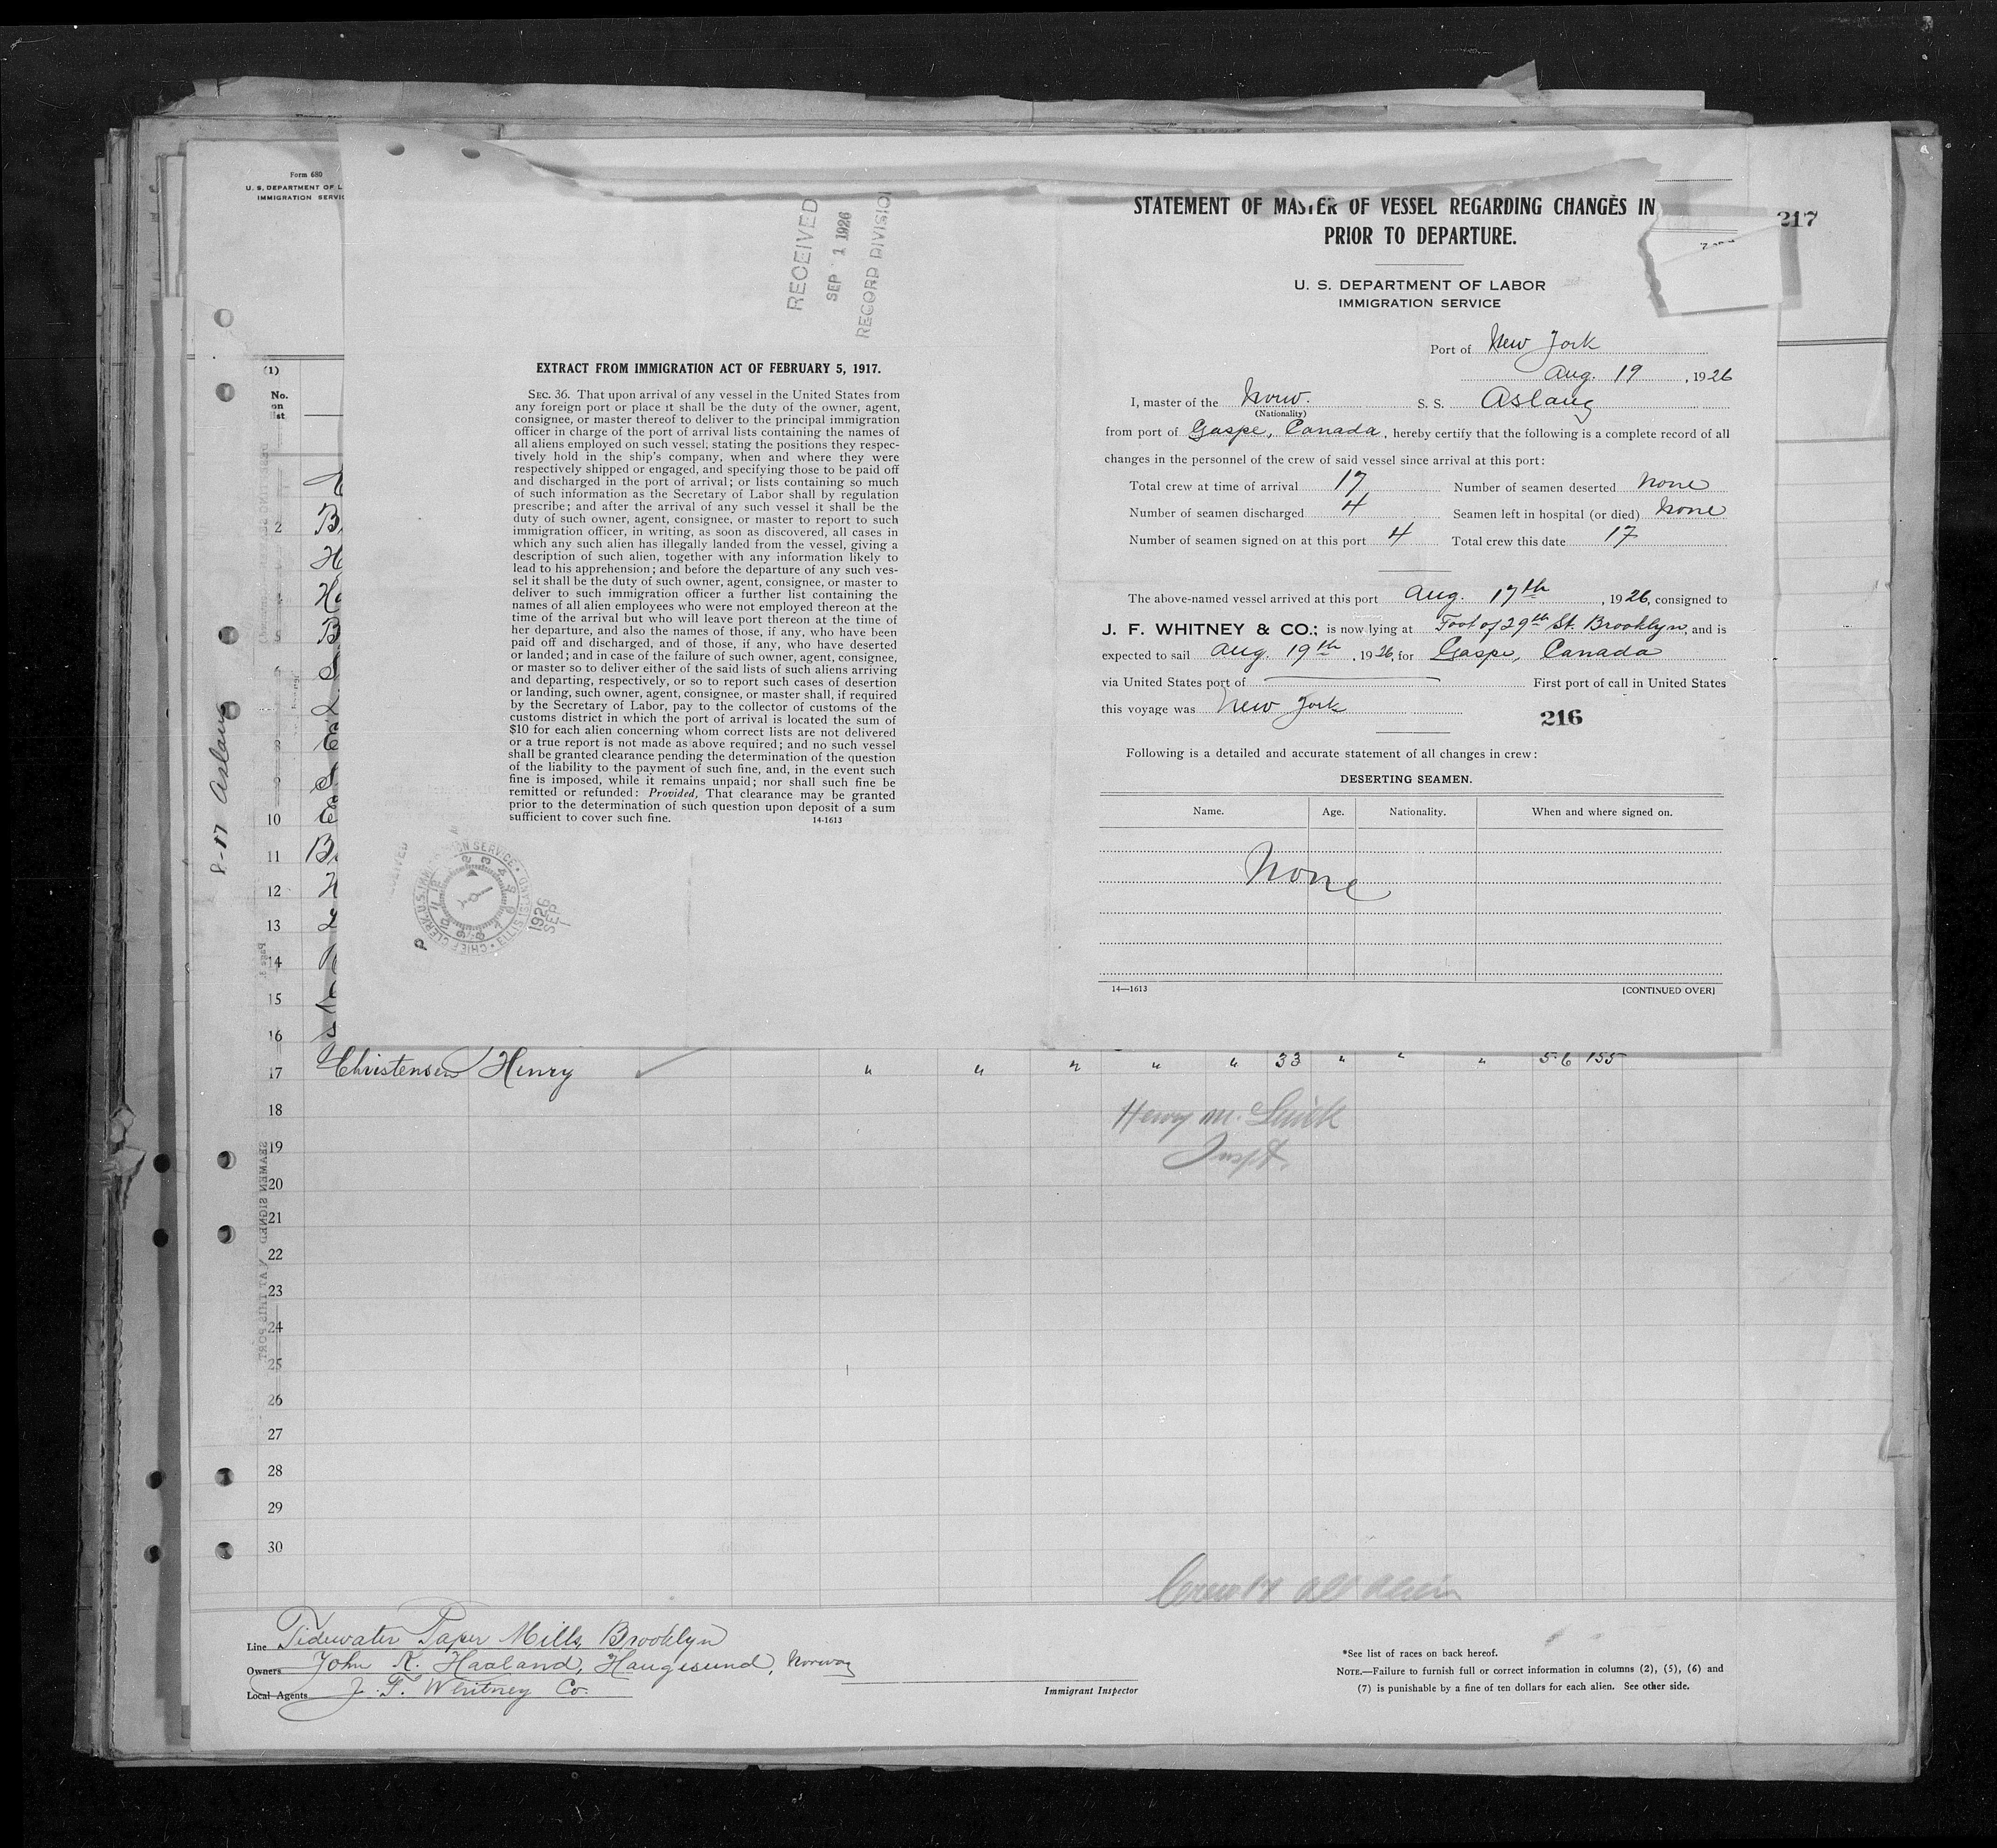 Form 680
U. S. DEPARTMENT OF L
IMMIGRATION SERVIC
(1)
No.
on
list
RECEIVED
SEP 1 1926
RECORD DIVISION
EXTRACT FROM IMMIGRATION ACT OF FEBRUARY 5, 1917.
SEC. 36. That upon arrival of any vessel in the United States from
any foreign port or place it shall be the duty of the owner, agent,
consignee, or master thereof to deliver to the principal immigration
officer in charge of the port of arrival lists containing the names of
all aliens employed on such vessel, stating the positions they respec-
tively hold in the ship's company, when and where they were
respectively shipped or engaged, and specifying those to be paid off
and discharged in the port of arrival; or lists containing so much
of such information as the Secretary of Labor shall by regulation
prescribe; and after the arrival of any such vessel it shall be the
duty of such owner, agent, consignee, or master to report to such
immigration officer, in writing, as soon as discovered, all cases in
which any such alien has illegally landed from the vessel, giving a
description of such alien, together with any information likely to
lead to his apprehension; and before the departure of any such ves-
sel it shall be the duty of such owner, agent, consignee, or master to
deliver to such immigration officer a further list containing the
names of all alien employees who were not employed thereon at the
time of the arrival but who will leave port thereon at the time of
her departure, and also the names of those, if any, who have been
paid off and discharged, and of those, if any, who have deserted
or landed; and in case of the failure of such owner, agent, consignee,
or master so to deliver either of the said lists of such aliens arriving
and departing, respectively, or so to report such cases of desertion
or landing, such owner, agent, consignee, or master shall, if required
by the Secretary of Labor, pay to the collector of customs of the
customs district in which the port of arrival is located the sum of
$10 for each alien concerning whom correct lists are not delivered
or a true report is not made as above required; and no such vessel
shall be granted clearance pending the determination of the question
of the liability to the payment of such fine, and, in the event such
fine is imposed, while it remains unpaid; nor shall such fine be
remitted or refunded: Provided, That clearance may be granted
prior to the determination of such question upon deposit of a sum
sufficient to cover such fine. 14-1613
STATEMENT OF MASTER OF VESSEL REGARDING CHANGES IN
PRIOR TO DEPARTURE.
217
U. S. DEPARTMENT OF LABOR
IMMIGRATION SERVICE
Port of New York
Aug. 19, 1926
I, master of the Norw. S. S. Aslaug
(Nationality)
from port of Gaspe, Canada, hereby certify that the following is a complete record of all
changes in the personnel of the crew of said vessel since arrival at this port:
Total crew at time of arrival 17 Number of seamen deserted None
Number of seamen discharged 4 Seamen left in hospital (or died) None
Number of seamen signed on at this port 4 Total crew this date 17
The above-named vessel arrived at this port Aug. 17th, 1926, consigned to
J. F. WHITNEY & CO.; is now lying at Foot of 29th St. Brooklyn, and is
expected to sail Aug. 19th, 1926, for Gaspe, Canada
via United States port of First port of call in United States
this voyage was New York
216
Following is a detailed and accurate statement of all changes in crew:
DESERTING SEAMEN.
Name. Age. Nationality. When and where signed on.
None
14—1613 [CONTINUED OVER]
8-17 Aslaug
2
5
8
9
10
11
12
13
14
15
16
17 Christensen Henry " " " " " 33 " " " 5 6 155
18
19
20
21
22
23
24
25
26
27
28
29
30
Inspt.
Crew 17 all alien
Line Tidewater Paper Mills, Brooklyn
Owners John K. Haaland, Haugesund, Norway
Local Agents J. F. Whitney Co.
Immigrant Inspector
*See list of races on back hereof.
NOTE.—Failure to furnish full or correct information in columns (2), (5), (6) and
(7) is punishable by a fine of ten dollars for each alien. See other side.